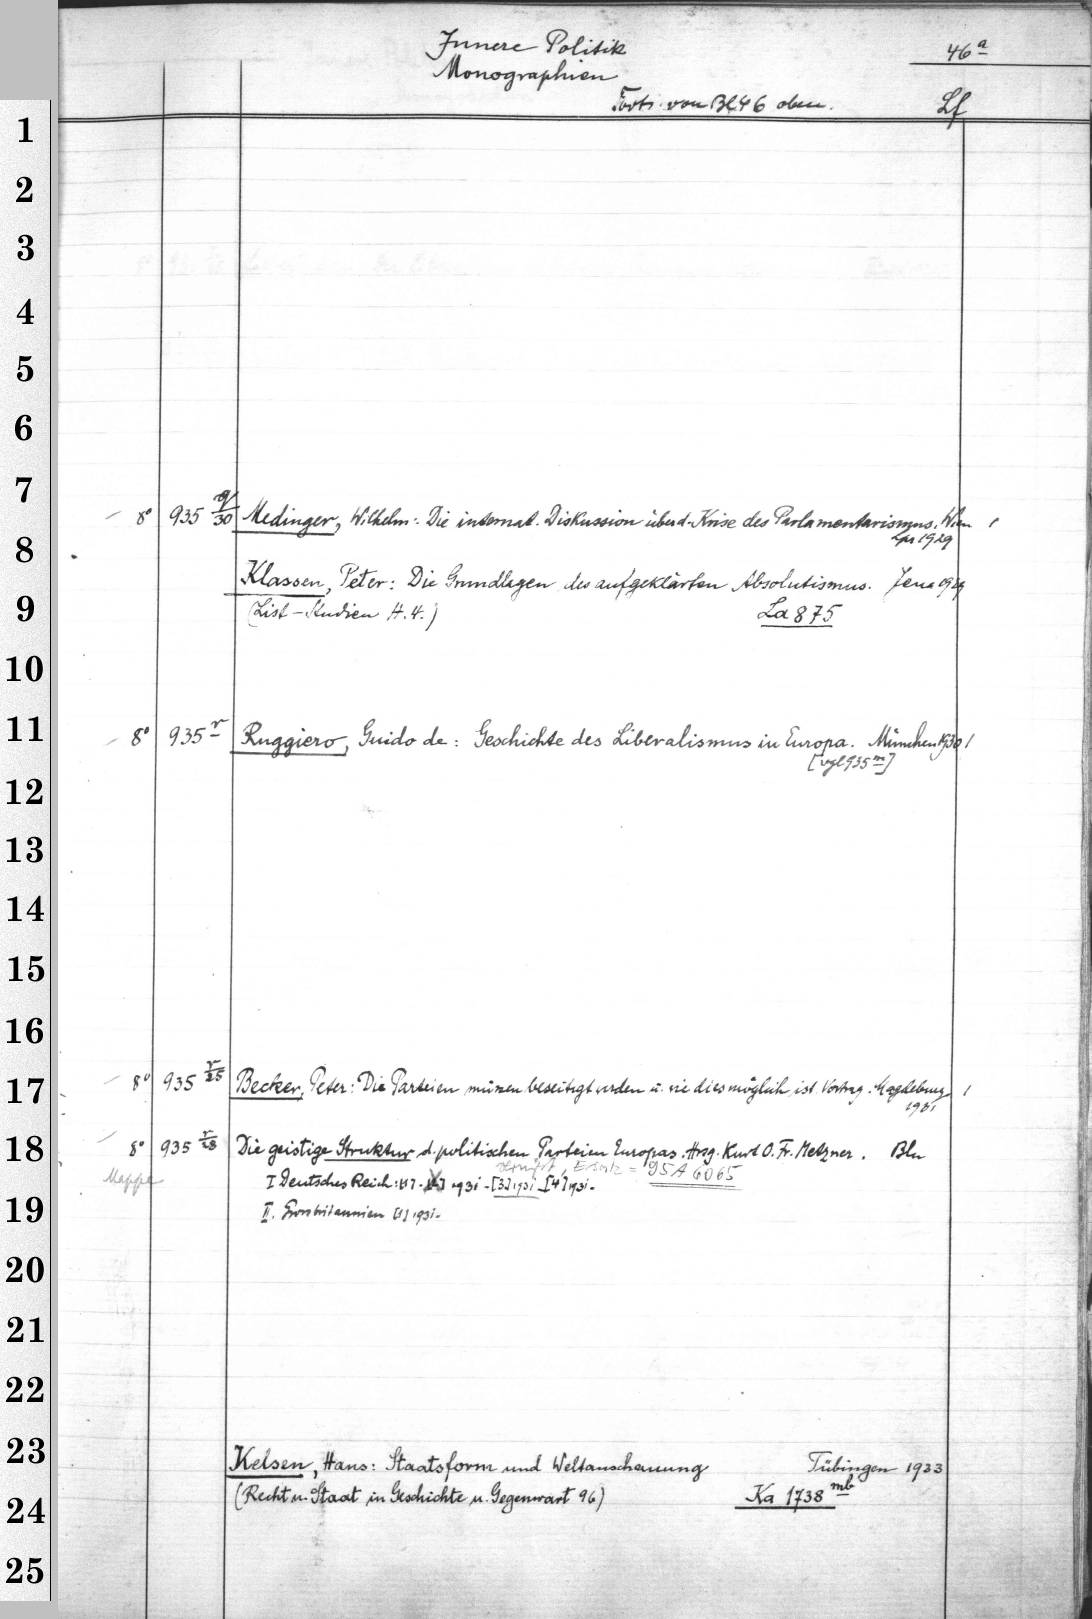 Innere Politik 46a
Monographien
Forts. von Bl 46 oben. Lf
1
2
3
4
5
6
7
8° 935 q/30 Medinger, Wilhelm: Die internat. Diskussion über d. Krise des Parlamentarismus. Wien
Lpz 1929
8
Klassen, Peter: Die Grundlagen des aufgeklärten Absolutismus. Jena 1929
9 (List-Studien H. 4.) La 875
10
11 8° 935 r Ruggiero, Guido de: Geschichte des Liberalismus in Europa. München 1930
[vgl 935 m]
12
13
14
15
16
17 8° 935 r/25 Becker, Peter: Die Parteien müssen beseitigt werden u. wie dies möglich ist. Vortrag. Magdeburg
1931
18 8° 935 r/28 Die geistige Struktur d. politischen Parteien Europas. Hrsg. Kurt O. Fr. Metzner. Bln
Ersatz = 95 A 6065
Mappe I. Deutsches Reich: [1] - [2] 1931 - [3] 1931 - [4] 1931.
19 II. Grossbritannien [1] 1931.
20
21
22
23 Kelsen, Hans: Staatsform und Weltanschauung Tübingen 1933
24 (Recht u. Staat in Geschichte u. Gegenwart 96) Ka 1738 mb
25